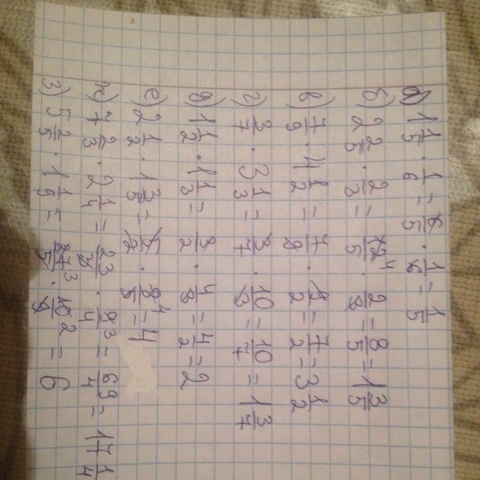 а) 1 1/5 · 1/6 = 6/5 · 1/6 = 1/5
б) 2 2/5 · 2/3 = 12⁴/5 · 2/3 = 8/5 = 1 3/5
в) 7/9 · 4 1/2 = 7/9 · 9/2 = 7/2 = 3 1/2
г) 3/7 · 3 1/3 = 3/7 · 10/3 = 10/7 = 1 3/7
д) 1 1/2 · 1 1/3 = 3/2 · 4/3 = 4/2 = 2
е) 2 1/2 · 1 3/5 = 5/2 · 8⁴/5 = 4
ж) 7 2/3 · 2 1/4 = 23/3 · 9³/4 = 69/4 = 17 1/4
з) 5 2/5 · 1 1/9 = 27³/5 · 10²/9 = 6